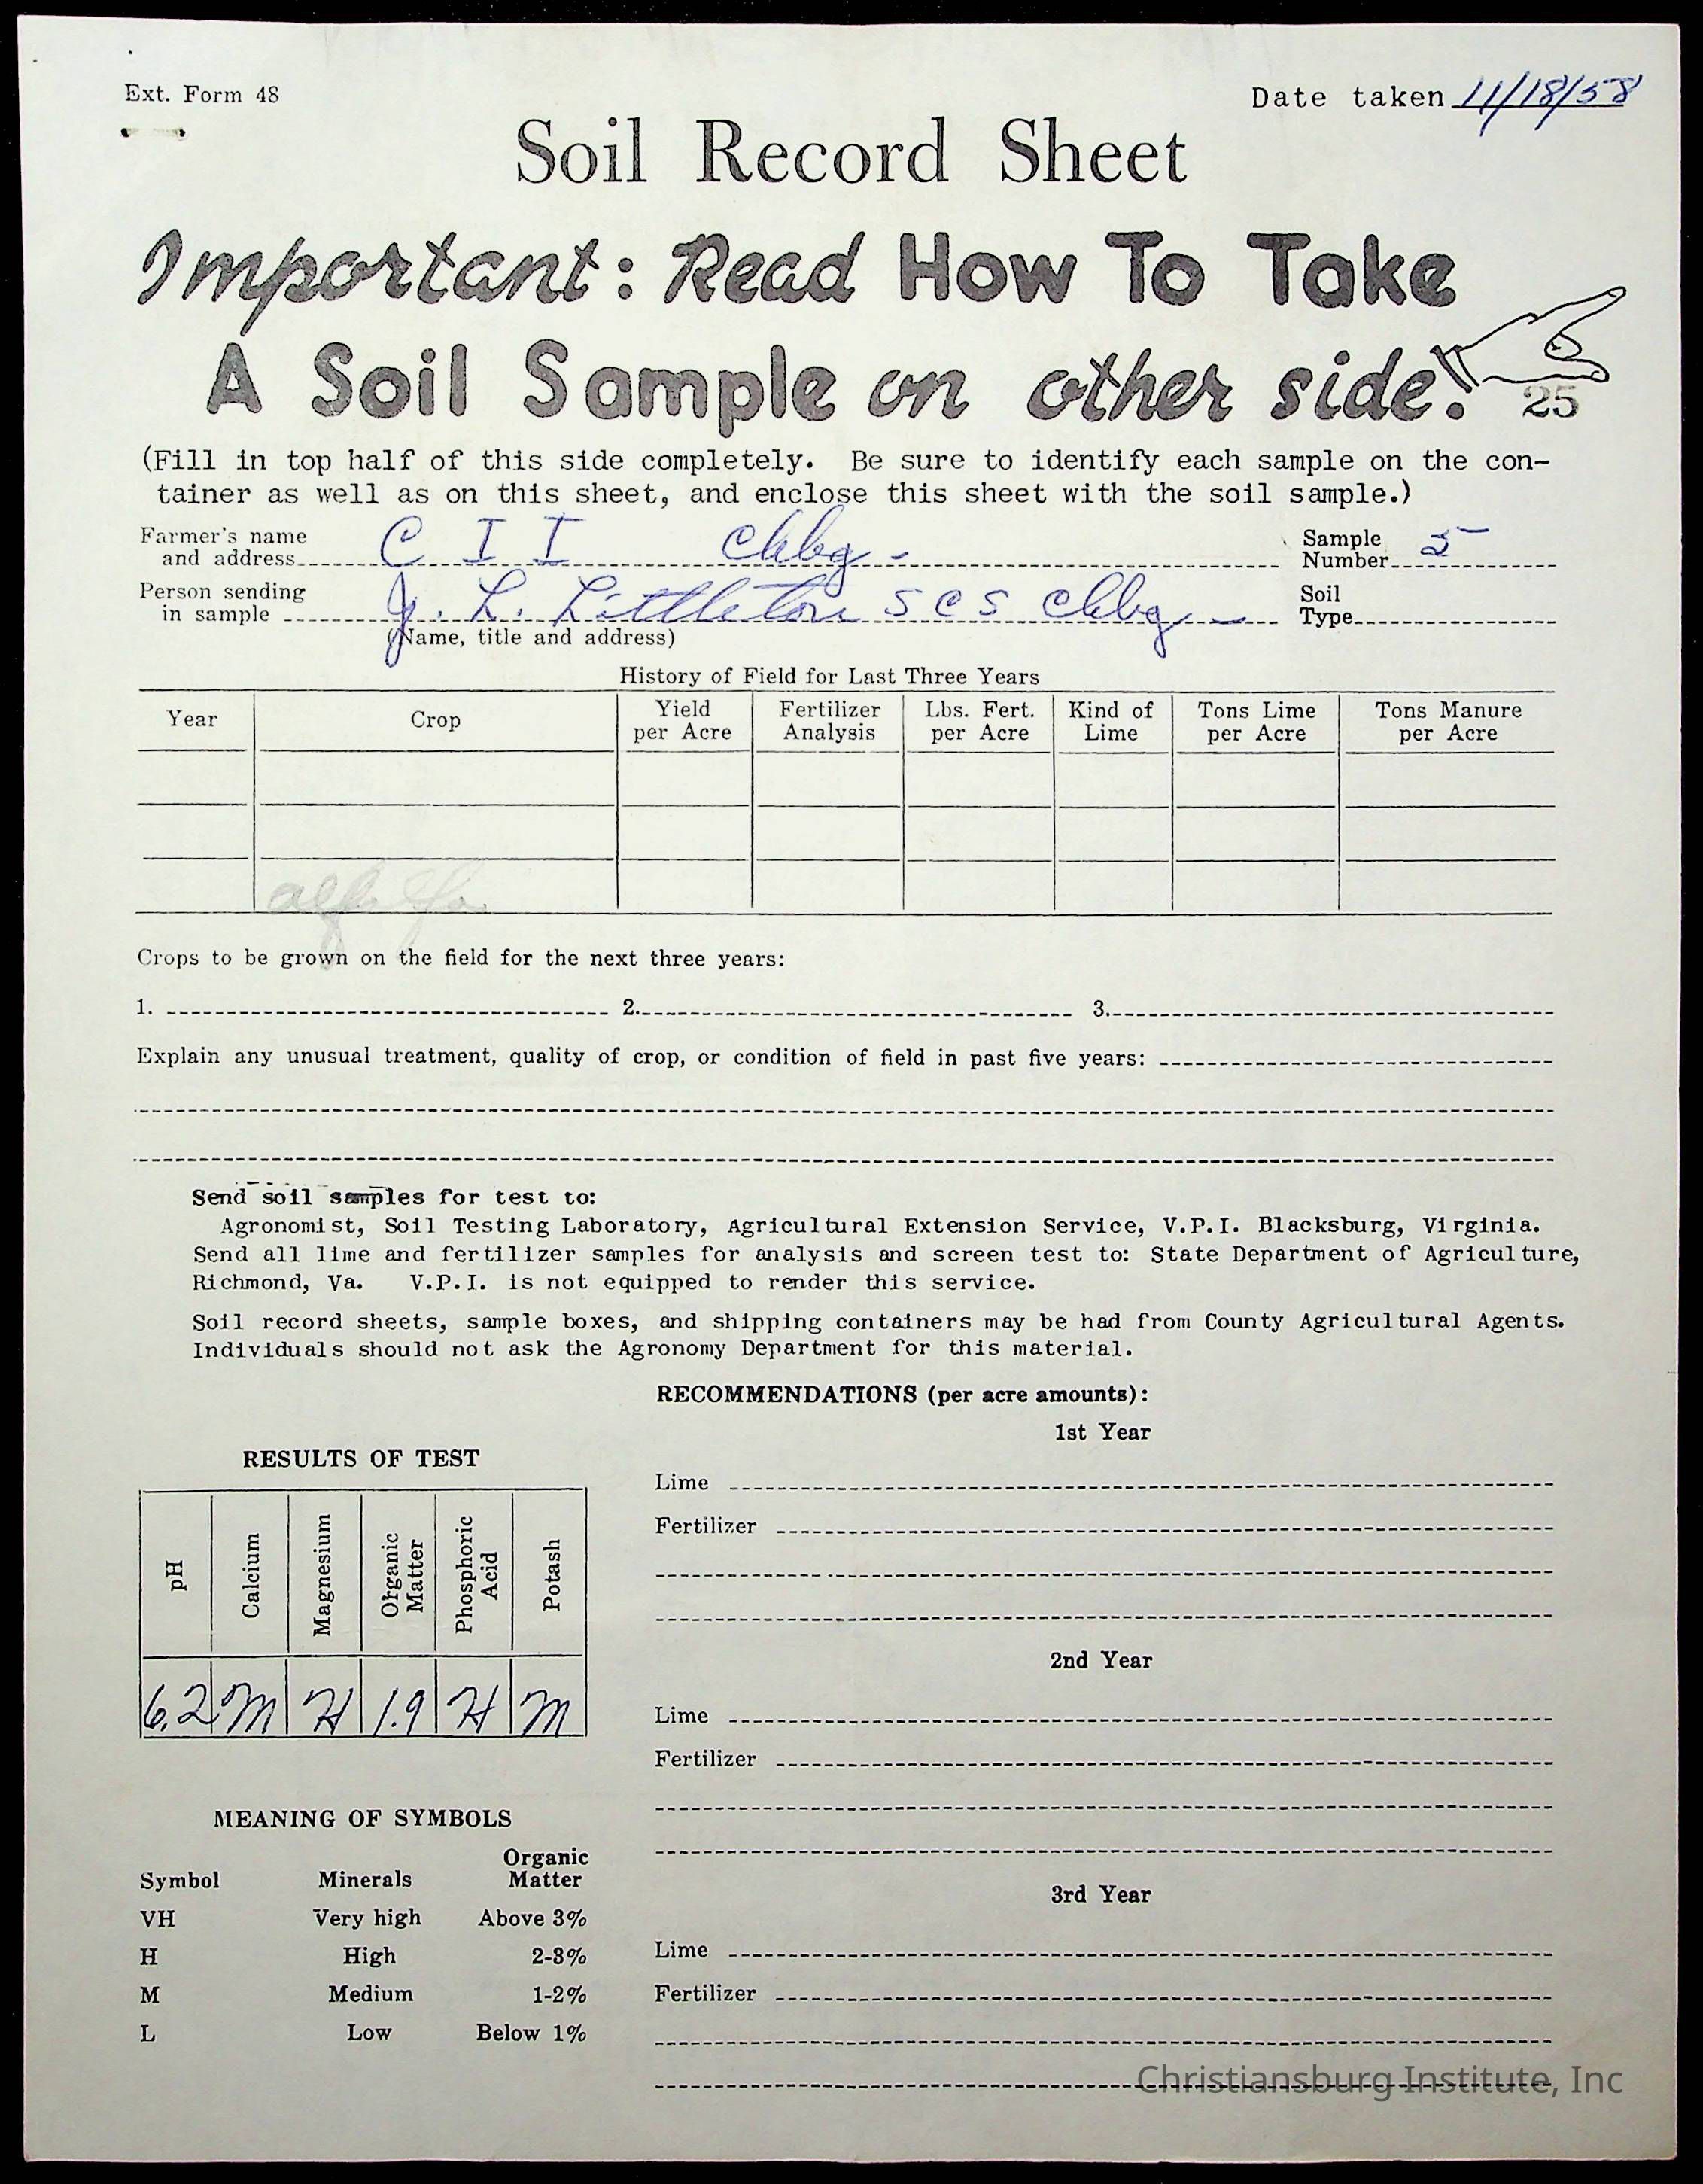 Ext. Form 48
Date taken 11/18/58
Soil Record Sheet
Important: Read How To Take
A Soil Sample on other side!
25
(Fill in top half of this side completely. Be sure to identify each sample on the con-
tainer as well as on this sheet, and enclose this sheet with the soil sample.)
Farmer's name
and address C I I Chbg.
Sample
Number 5
Person sending
in sample J. L. Littleton S C S Chbg
Soil
Type
(Name, title and address)
History of Field for Last Three Years
Year Crop Yield per Acre Fertilizer Analysis Lbs. Fert. per Acre Kind of Lime Tons Lime per Acre Tons Manure per Acre
alfalfa
Crops to be grown on the field for the next three years:
1. 2. 3.
Explain any unusual treatment, quality of crop, or condition of field in past five years:
Send soil samples for test to:
Agronomist, Soil Testing Laboratory, Agricultural Extension Service, V.P.I. Blacksburg, Virginia.
Send all lime and fertilizer samples for analysis and screen test to: State Department of Agriculture,
Richmond, Va. V.P.I. is not equipped to render this service.
Soil record sheets, sample boxes, and shipping containers may be had from County Agricultural Agents.
Individuals should not ask the Agronomy Department for this material.
RESULTS OF TEST
pH Calcium Magnesium Organic Matter Phosphoric Acid Potash
6.2 M H 1.9 H M
MEANING OF SYMBOLS
Symbol Minerals Organic Matter
VH Very high Above 3%
H High 2-3%
M Medium 1-2%
L Low Below 1%
RECOMMENDATIONS (per acre amounts):
1st Year
Lime
Fertilizer
2nd Year
Lime
Fertilizer
3rd Year
Lime
Fertilizer
Christiansburg Institute, Inc